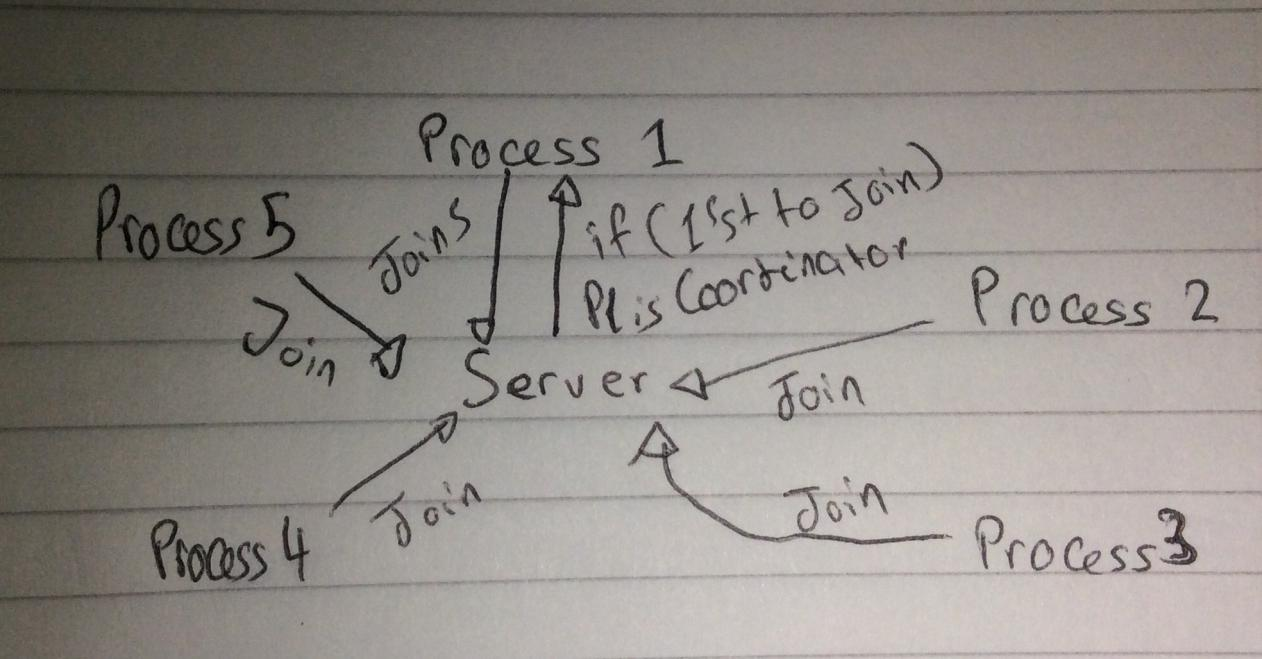 Process 1
Process 5
Joins
if (1'st to Join)
P1 is Coortinator
Process 2
Join
Server
Join
Join
Join
Process 4
Process 3